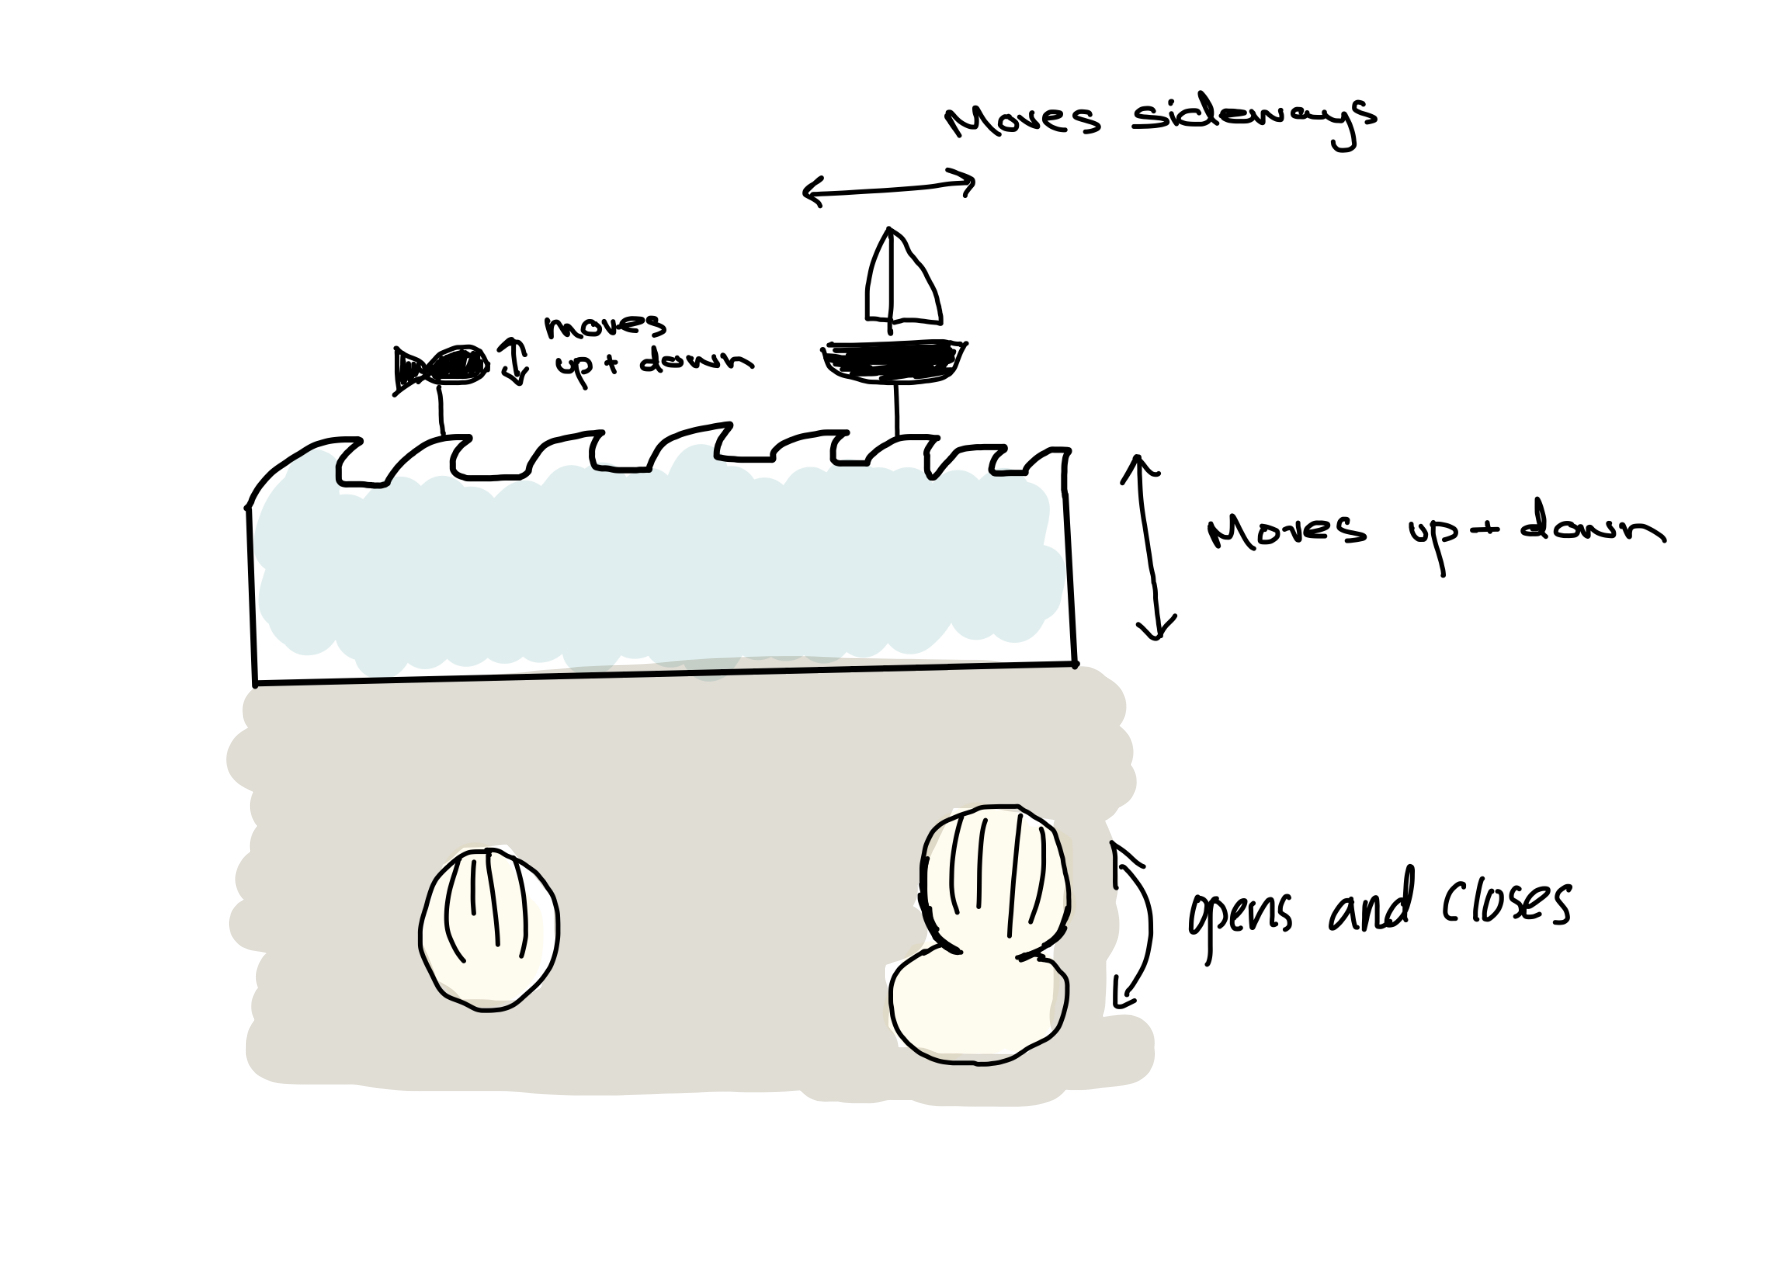 Moves sideways
moves
up + down
Moves up + down
opens and closes